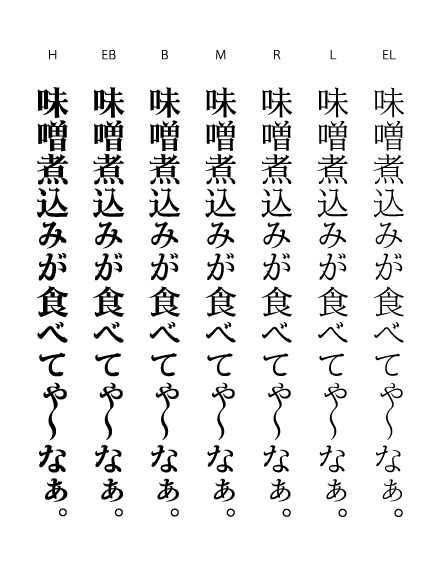 H EB B M R L EL
味噌煮込みが食べてや〜なぁ。
味噌煮込みが食べてや〜なぁ。
味噌煮込みが食べてや〜なぁ。
味噌煮込みが食べてや〜なぁ。
味噌煮込みが食べてや〜なぁ。
味噌煮込みが食べてや〜なぁ。
味噌煮込みが食べてや〜なぁ。